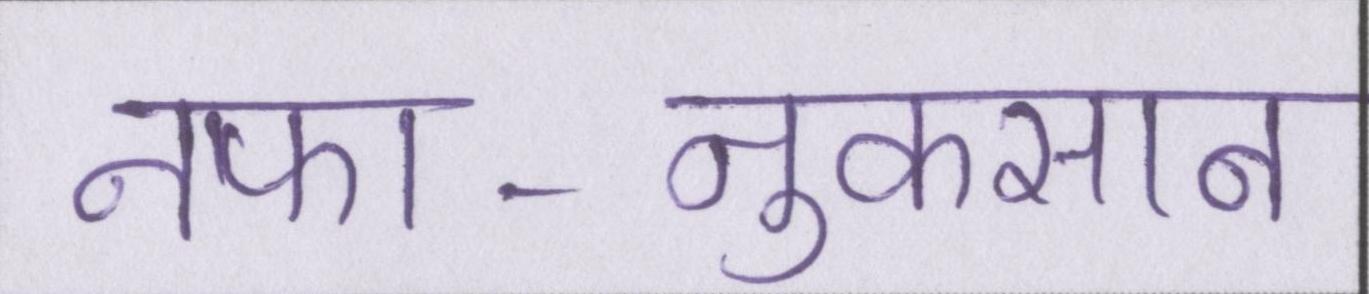 नफा - नुकसान